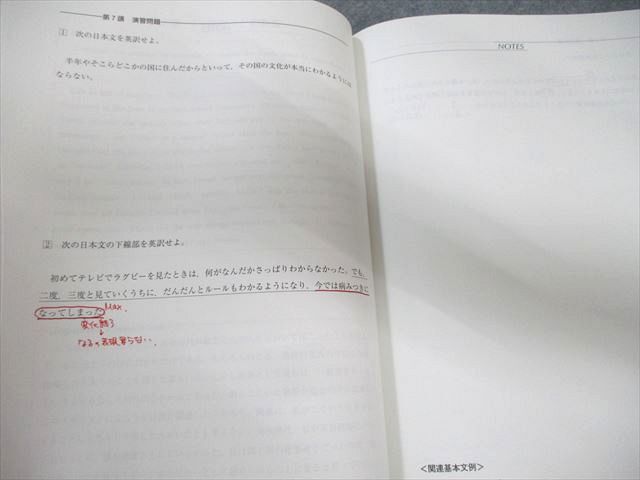 第7講 演習問題
1 次の日本文を英訳せよ。
半年やそこらどこかの国に住んだからといって，その国の文化が本当にわかるようには
ならない。
2 次の日本文の下線部を英訳せよ。
初めてテレビでラグビーを見たときは，何がなんだかさっぱりわからなかった。でも，
二度，三度と見ていくうちに，だんだんとルールもわかるようになり，今では病みつきに
なってしまった Max.
↓
NOTES
＜関連基本文例＞